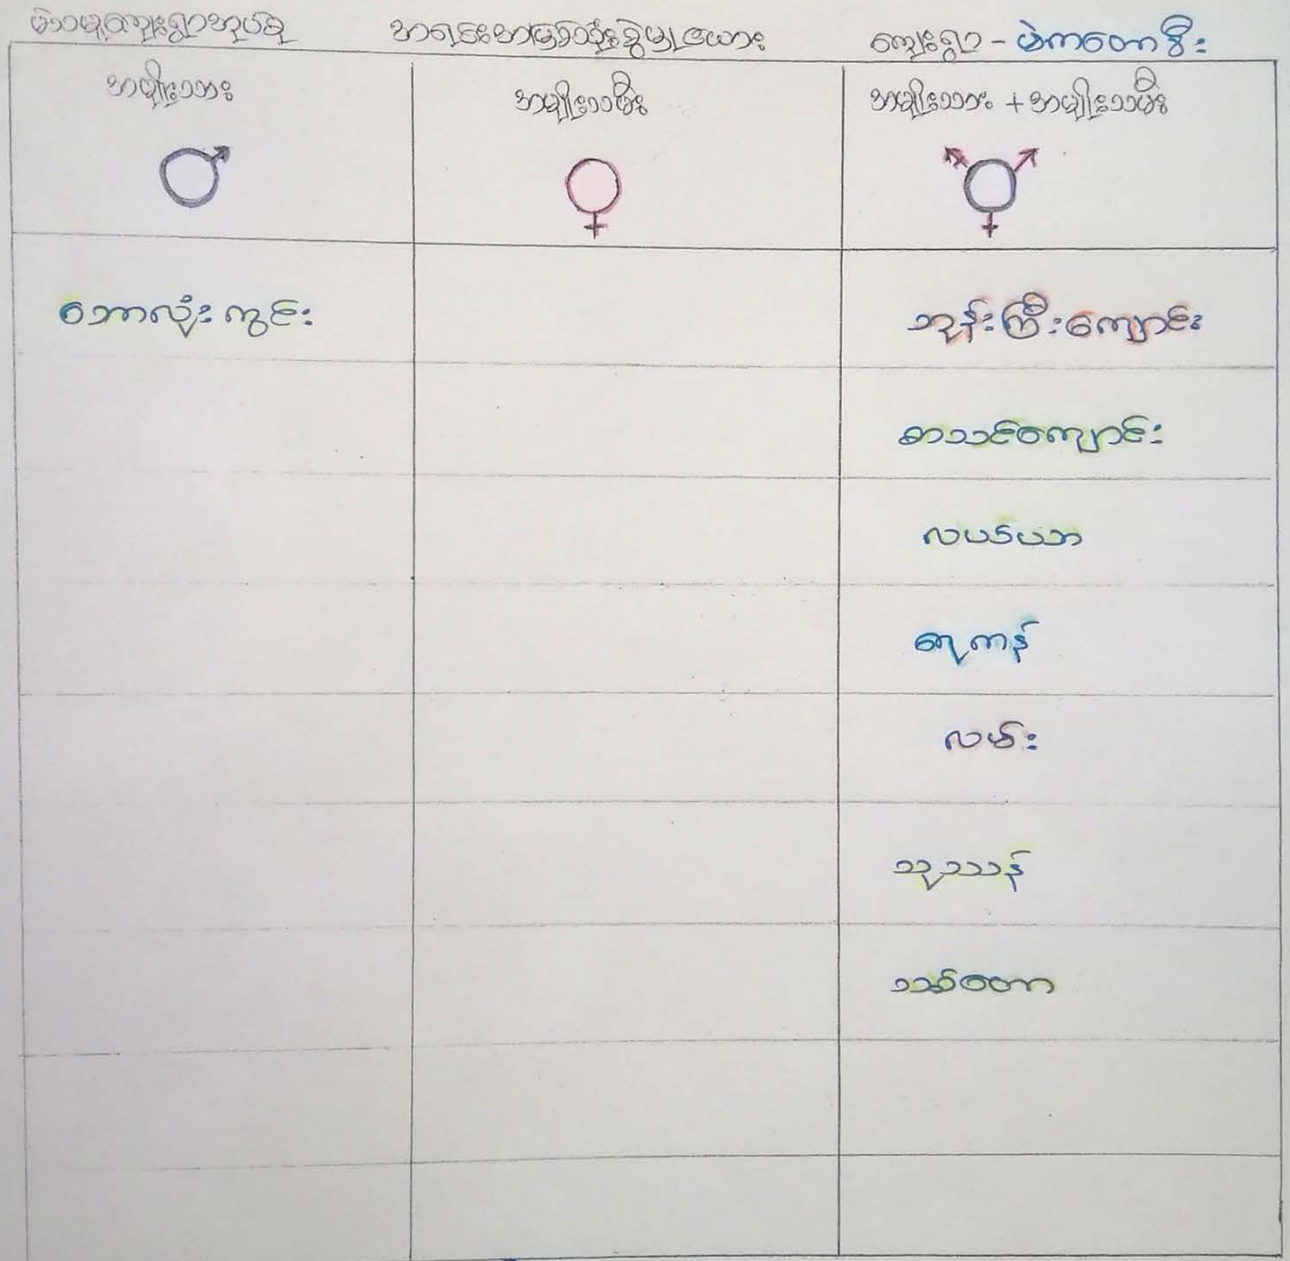 အရင်းအမြစ်သုံးစွဲမှုဇယား ကျေးရွာ - မဲကတောစီး
အမျိုးသား အမျိုးသမီး အမျိုးသား + အမျိုးသမီး
ဘောလုံးကွင်း ဘုန်းကြီးကျောင်း
စာသင်ကျောင်း
လယ်ယာ
ရေကန်
လမ်း
သုဿာန်
သစ်တော